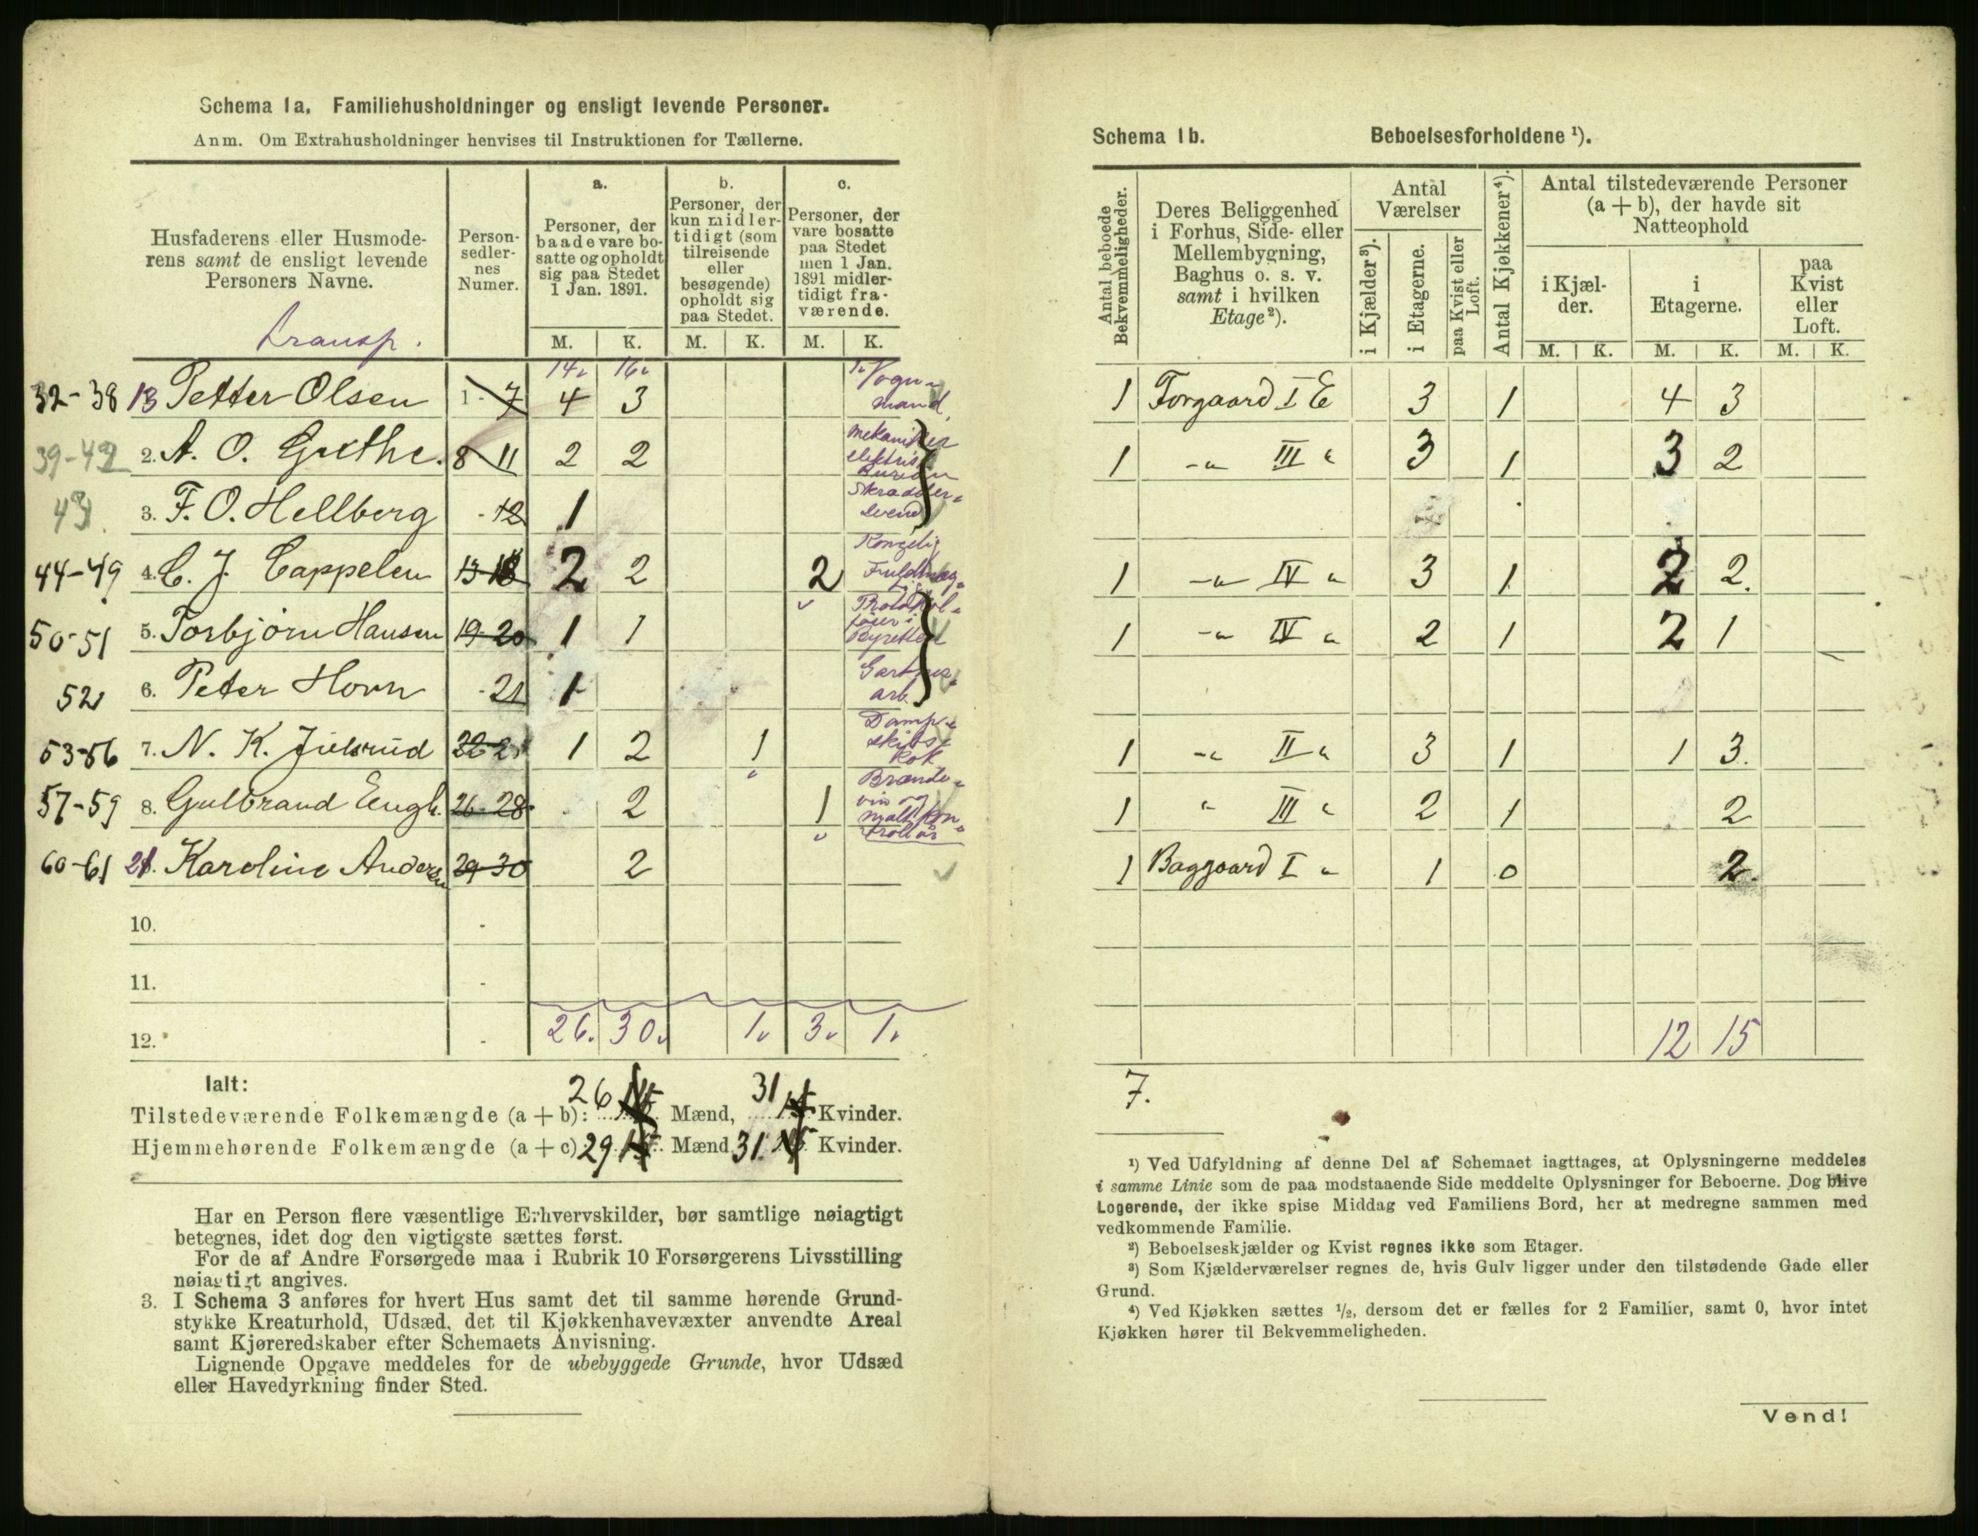 Schema 1a. Familiehusholdninger og ensligt levende Personer.
Anm. Om Extrahusholdninger henvises til Instruktionen for Tællerne.
Husfaderens eller Husmoderens samt de ensligt levende Personers Navne.
Personsedlernes Numer.
a. Personer, der baade vare bosatte og opholdt sig paa Stedet 1 Jan. 1891.
b. Personer, der kun midlertidigt (som tilreisende eller besøgende) opholdt sig paa Stedet.
c. Personer, der vare bosatte paa Stedet men 1 Jan. 1891 midlertidigt fraværende.
M. K. M. K. M. K.
Transp. 14. 16. 1.
32-38 13 Petter Olsen 1-7 4 3 Vognmand
39-42 2. A. O. Grethe. 8 11 2 2 Mekaniker elektrisk Bureau
43. 3. F. O. Hellberg - 12 1 Skrædder-svend
44-49 4. C. J. Cappelen 13 18 2 2 2 Kongelig Fuldmæg.
50-51 5. Torbjørn Hansen 19-20 1 1 Protokolfører i Byretten
52 6. Peter Horn - 21 1 Gartner arb.
53-56 7. N. K. Juelsrud 22-25 1 2 1 Dampskibskok
57-59 8. Gulbrand Engh. 26-28 2 1 Brændevin og maltkontrollør
60-61 21. Karoline Andersen 29-30 2
10. -
11. -
12. - 26. 30. 1. 3. 1.
Ialt:
Tilstedeværende Folkemængde (a + b): 26 Mænd, 31 Kvinder.
Hjemmehørende Folkemængde (a + c) 29 Mænd 31 Kvinder.
Har en Person flere væsentlige Erhvervskilder, bør samtlige nøiagtigt
betegnes, idet dog den vigtigste sættes først.
For de af Andre Forsørgede maa i Rubrik 10 Forsørgerens Livsstilling
nøiagtigt angives.
3. I Schema 3 anføres for hvert Hus samt det til samme hørende Grund-
stykke Kreaturhold, Udsæd, det til Kjøkkenhavevæxter anvendte Areal
samt Kjøreredskaber efter Schemaets Anvisning.
Lignende Opgave meddeles for de ubebyggede Grunde, hvor Udsæd
eller Havedyrkning finder Sted.
Schema 1b. Beboelsesforholdene ¹).
Antal beboede Bekvemmeligheder.
Deres Beliggenhed i Forhus, Side- eller Mellembygning, Baghus o. s. v. samt i hvilken Etage ²).
Antal Værelser
i Kjælder ³). i Etagerne. paa Kvist eller Loft.
Antal Kjøkkener ⁴).
Antal tilstedeværende Personer (a + b), der havde sit Natteophold
i Kjælder. i Etagerne. paa Kvist eller Loft.
M. K. M. K. M. K.
1 Forgaard I E 3 1 4 3
1 -"- III " 3 1 3 2
1 -"- IV " 3 1 2 2.
1 -"- IV " 2 1 2 1
1 -"- II " 3 1 1 3.
1 " III " 2 1 2
1 Baggaard I " 1 0 2.
12 15
7.
¹) Ved Udfyldning af denne Del af Schemaet iagttages, at Oplysningerne meddeles
i samme Linie som de paa modstaaende Side meddelte Oplysninger for Beboerne. Dog blive
Logerende, der ikke spise Middag ved Familiens Bord, her at medregne sammen med
vedkommende Familie.
²) Beboelseskjælder og Kvist regnes ikke som Etager.
³) Som Kjælderværelser regnes de, hvis Gulv ligger under den tilstødende Gade eller
Grund.
⁴) Ved Kjøkken sættes ½, dersom det er fælles for 2 Familier, samt 0, hvor intet
Kjøkken hører til Bekvemmeligheden.
Vend!